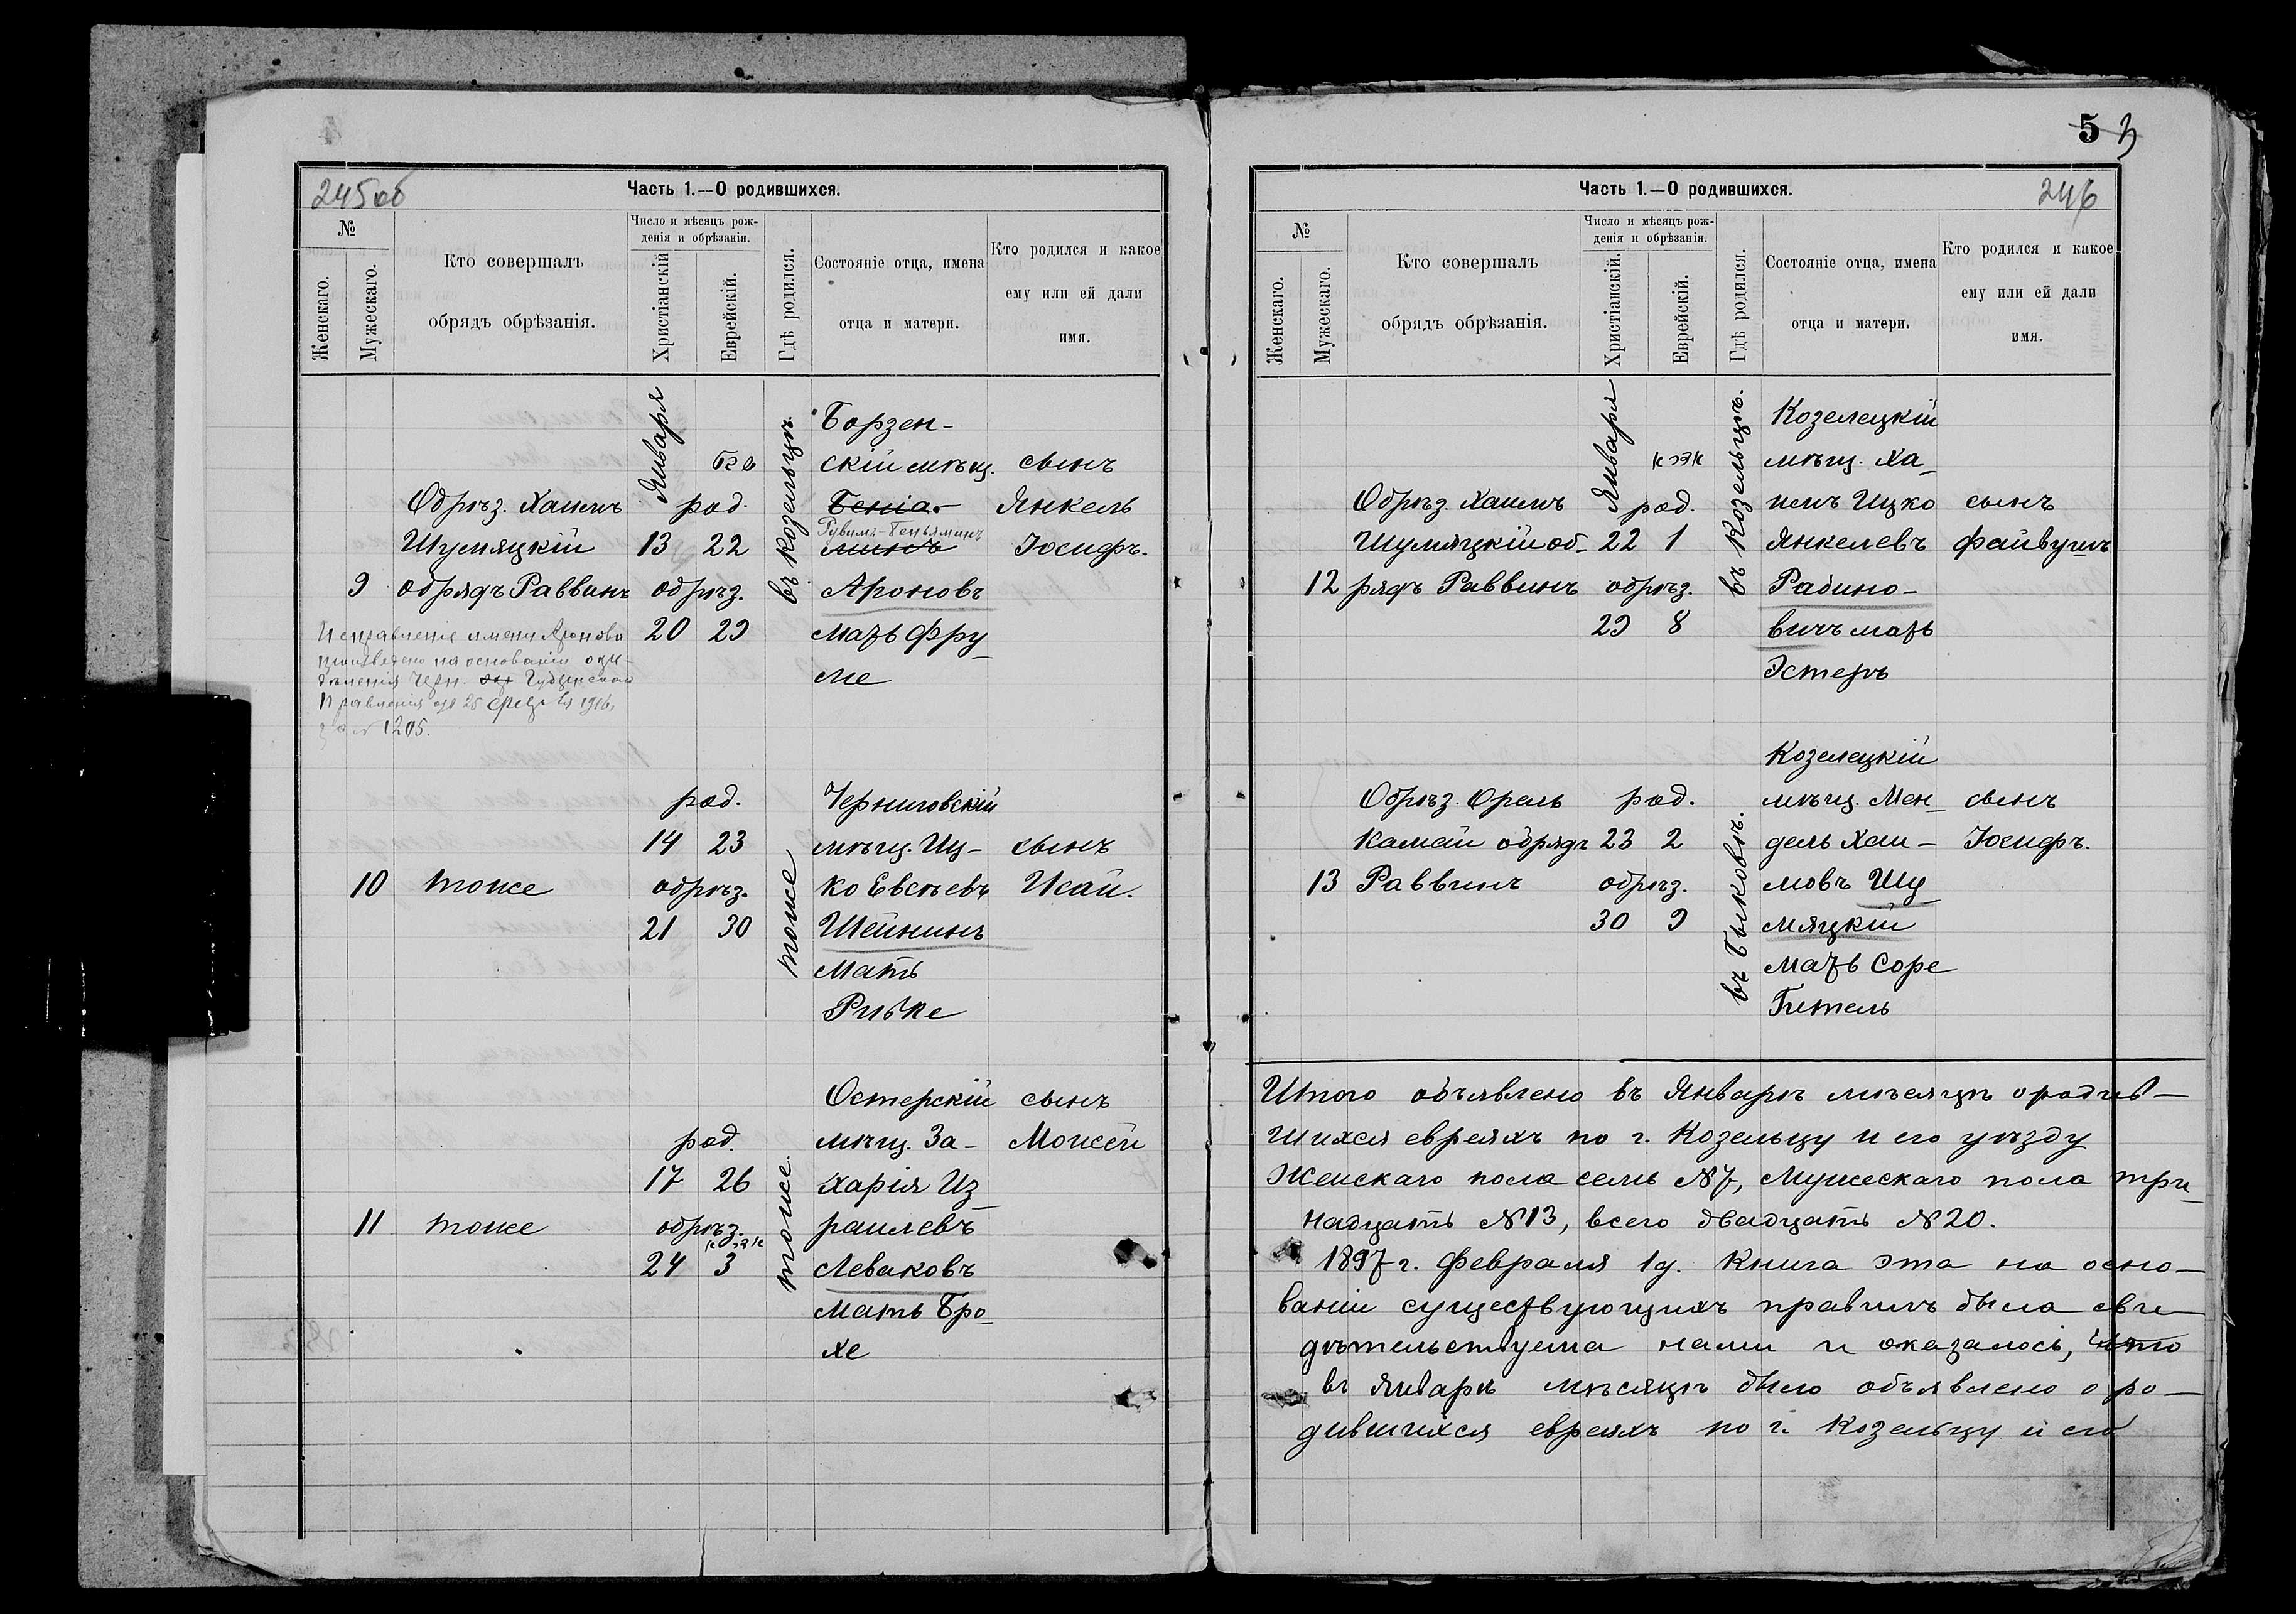 245 об
Часть 1.—О родившихся.
№
Женскаго.
Мужескаго.
Кто совершалъ
обрядъ обрѣзанія.
Число и мѣсяцъ рож-
денія и обрѣзанія.
Христіанскій.
Еврейскій.
Гдѣ родился.
Состояніе отца, имена
отца и матери.
Кто родился и какое
ему или ей дали
имя.
9
Обрѣз. Хаимъ
Шумяцкій
обрядъ Раввинъ
Января
род.
13 22
обрѣз.
20 29
въ Козельцѣ.
Борзен-
скій мѣщ.
Беніа-
Рувимъ-Беньяминъ
минъ
Ароновъ
мать Фру
ме
сынъ
Янкель
Іосифъ.
Исправленіе имени Ароново
произведено на основаніи опре-
дѣленія Черн. Губернскаго
Правленія
1205.
10
тоже
род.
14 23
обрѣз.
21 30
тоже
Черниговскій
мѣщ. Иц-
ко Евсѣевъ
Шейнинъ
Мать
Ривке
сынъ
Исай.
11
тоже
род.
17 26
обрѣз.
24 3
тоже.
Остерскій
мѣщ. За-
харія Из
раилевъ
Леваковъ
Мать Бро
хе
сынъ
Моисей
5 3
Часть 1.—О родившихся.
246
№
Женскаго.
Мужескаго.
Кто совершалъ
обрядъ обрѣзанія.
Число и мѣсяцъ рож-
денія и обрѣзанія.
Христіанскій.
Еврейскій.
Гдѣ родился.
Состояніе отца, имена
отца и матери.
Кто родился и какое
ему или ей дали
имя.
12
Обрѣз. Хаимъ
Шумяцкій об-
рядъ Раввинъ
Января
род.
22 1
обрѣз.
29 8
въ Козельцѣ.
Козелецкій
мѣщ. Ха
немъ Ицко
Янкелевъ
Рабино-
вичъ мать
Эстеръ
сынъ
Файвушъ
13
Обрѣз. Орель
Камай обрядъ
Раввинъ
род.
23 2
обрѣз.
30 9
въ Быковѣ.
Козелецкій
мѣщ. Мен
дель Хаи-
мовъ Шу
мяцкій
мать Соре
Гитель
сынъ
Іосифъ.
Итого объявлено въ Январѣ мѣсяцѣ о родив-
шихся евреяхъ по г. Козельцу и его уѣзду
Женскаго пола семь №7, Мужескаго пола три
надцать №13, всего двадцать №20.
1897 г. Февраля 1 д. Книга эта на осно-
ваніи существующихъ правилъ была сви
дѣтельствуема нами и оказалось, что
въ Январѣ мѣсяцѣ было объявлено о ро-
дившихся евреяхъ по г. Козельцу и его